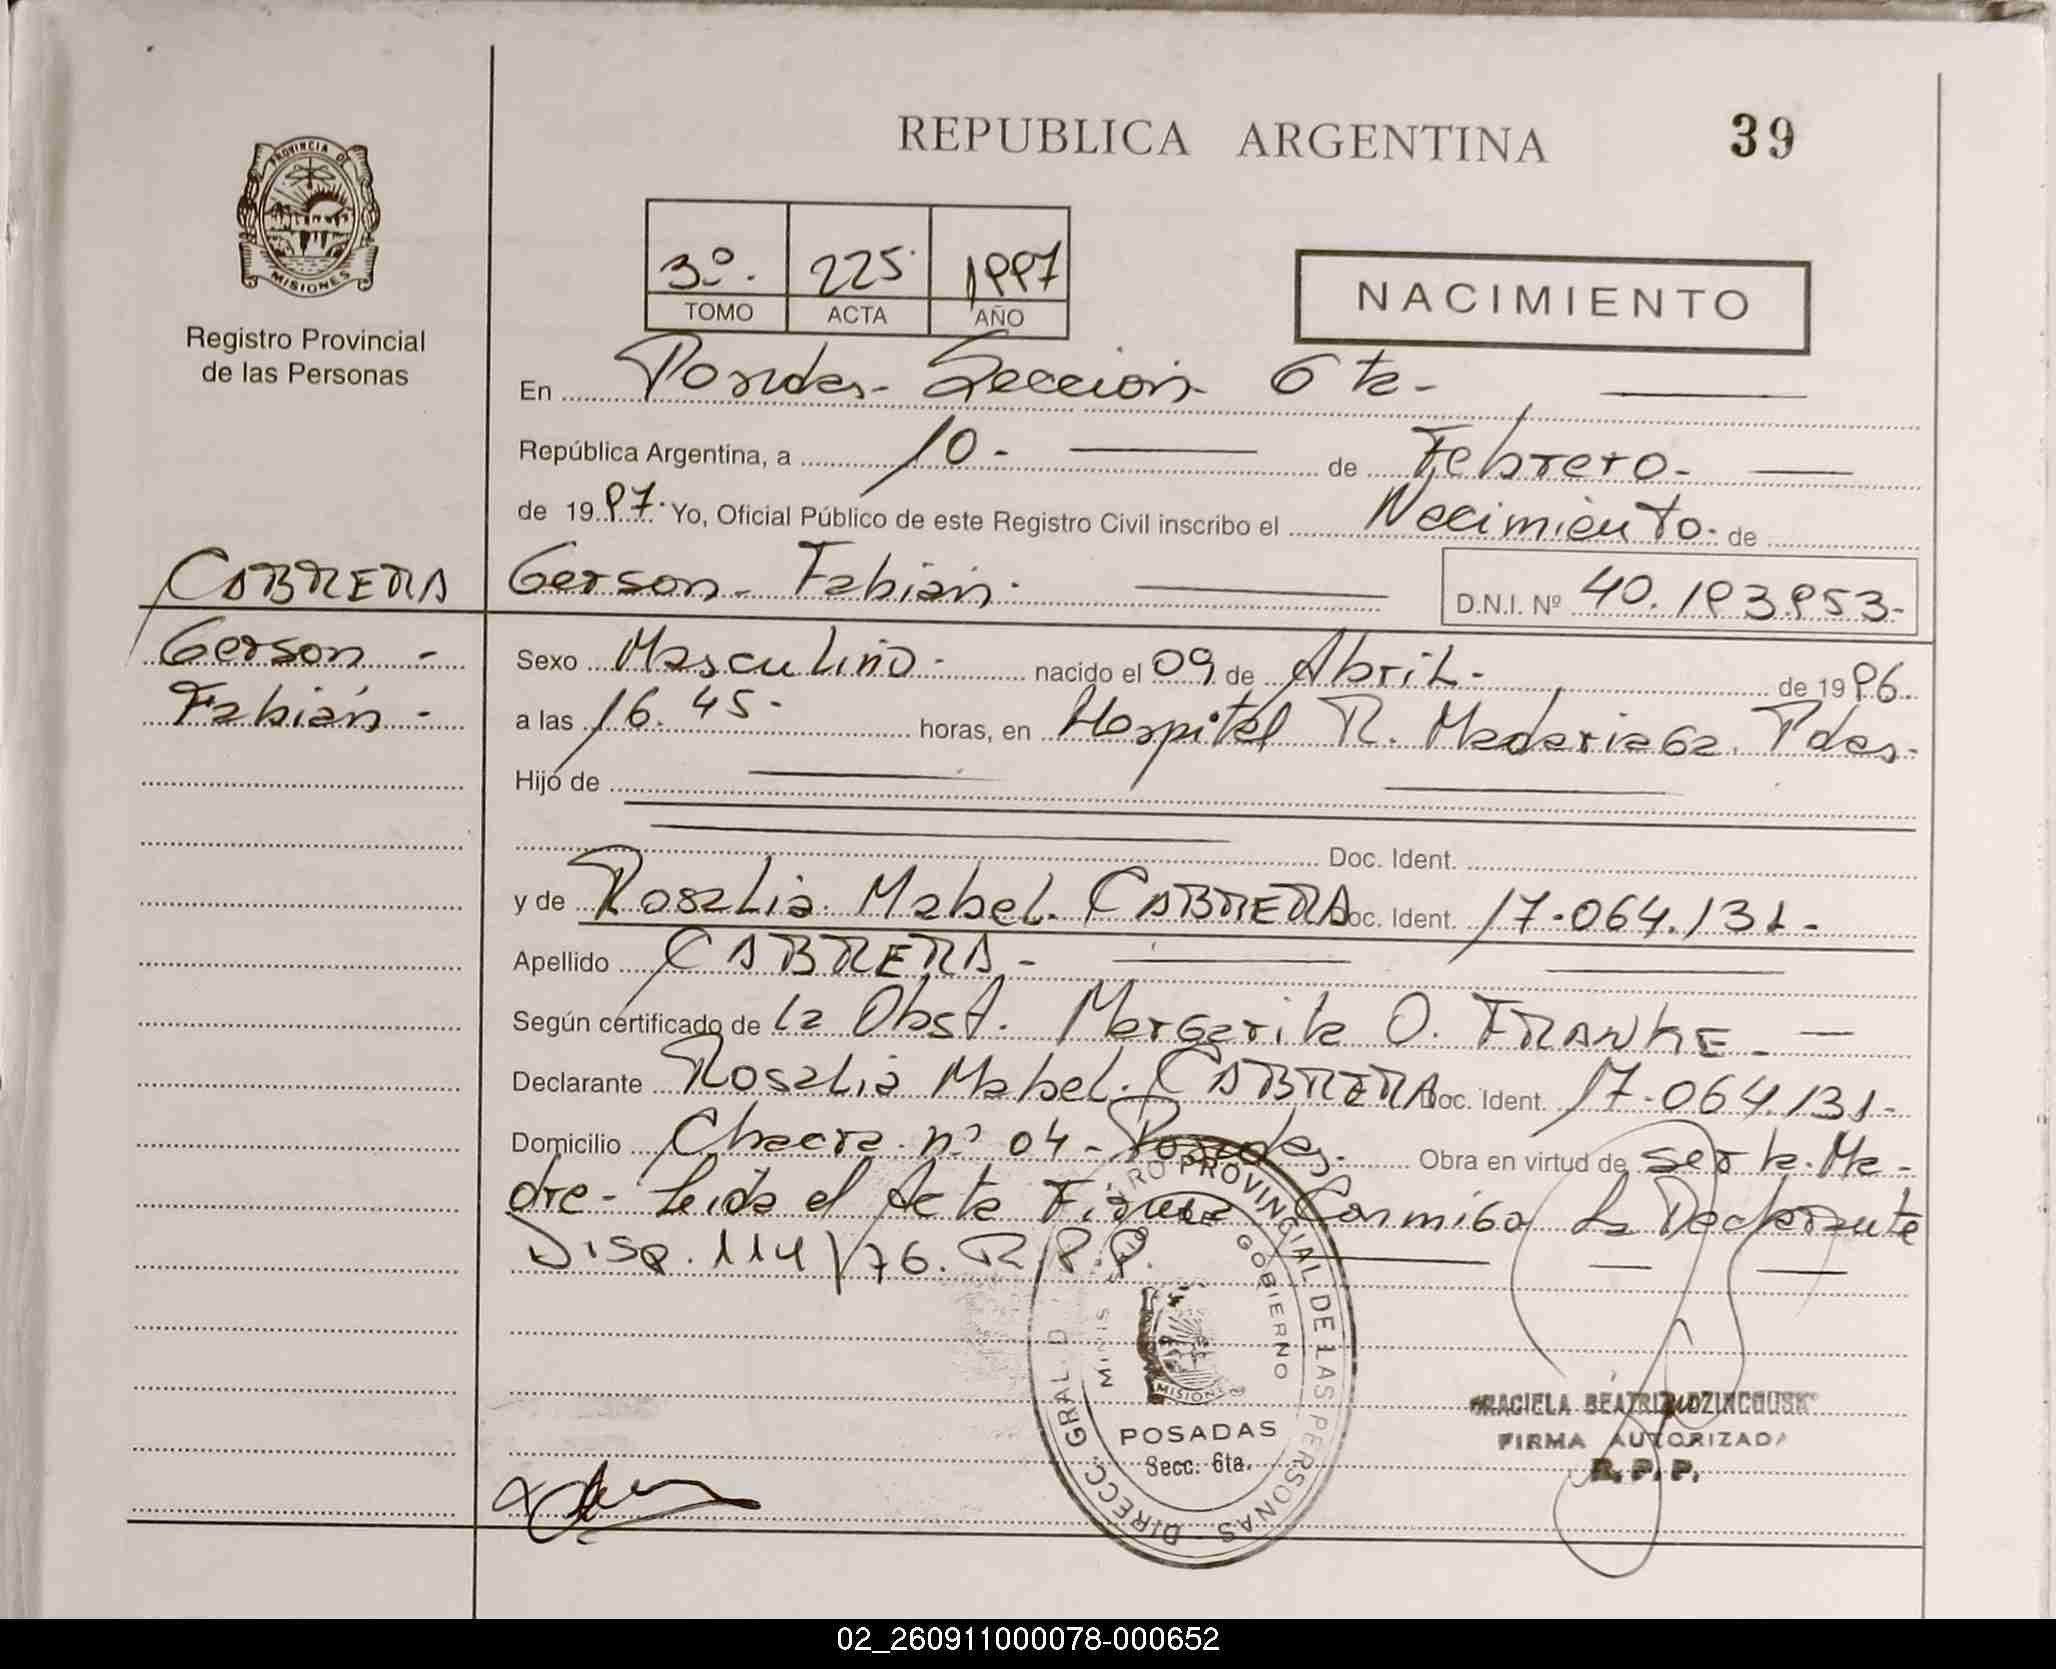 REPUBLICA ARGENTINA 39
PROVINCIA DE
MISIONES
Registro Provincial
de las Personas
3º. 225. 1997
TOMO ACTA AÑO
NACIMIENTO
En Posadas - Sección 6 ta -
República Argentina, a 10 - de Febrero -
de 1997. Yo, Oficial Público de este Registro Civil inscribo el Nacimiento. de
CABRERA
Gerson -
Fabián -
Gerson - Fabián. D.N.I. Nº 40.193.953-
Sexo Masculino. nacido el 09 de Abril. de 1996.
a las 16.45. horas, en Hospital R. Madariaga. Pdas.
Hijo de
Doc. Ident.
y de Rosalia Mabel. CABRERA Doc. Ident. 17.064.131.-
Apellido CABRERA -
Según certificado de la Obst. Margarita O. FRANKE -
Declarante Rosalia Mabel. CABRERA Doc. Ident. 17.064.131-
Domicilio Chacra nº 04 - Posadas. Obra en virtud de ser la Ma-
dre - Leida el Acta Firma Conmigo La Declarante
Disp. 114/76. R.P.P.
DIRECC. GRAL. D REGISTRO PROVINCIAL DE LAS PERSONAS
MINISTERIO DE GOBIERNO
MISIONES
POSADAS
Secc. 6ta.
GRACIELA BEATRIZ
FIRMA AUTORIZADA
R. P. P.
02_260911000078-000652